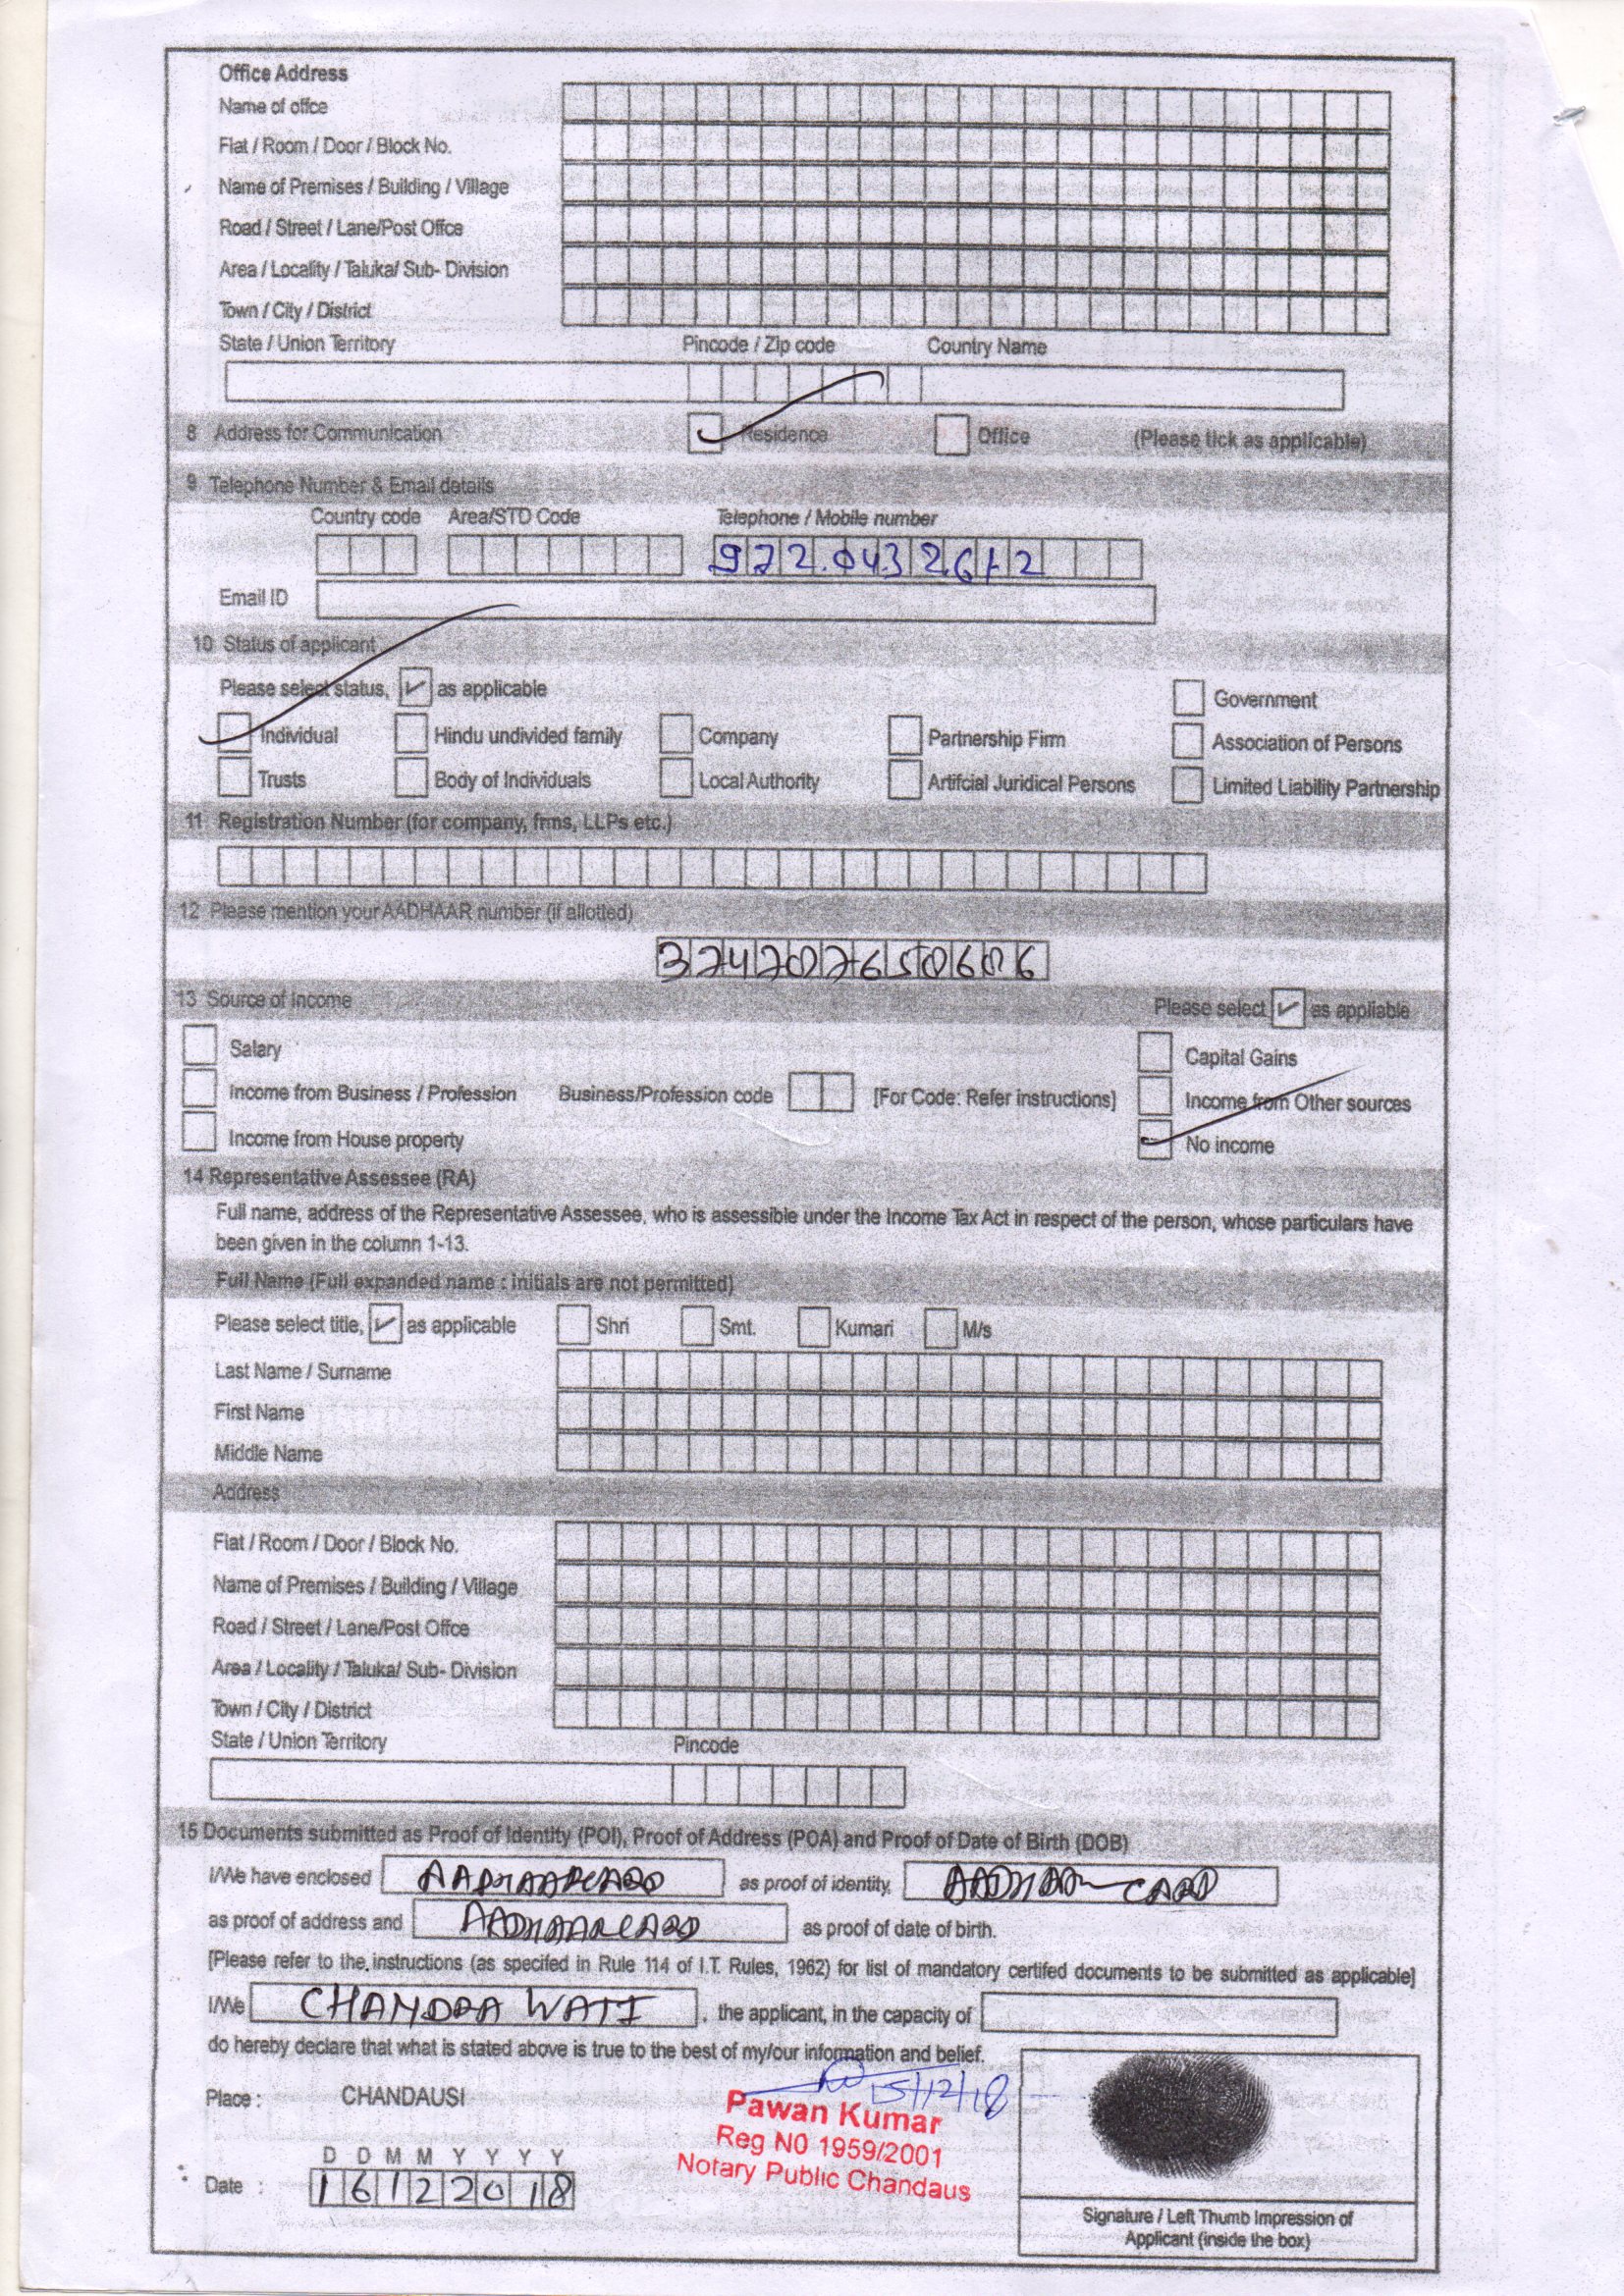 Office Address
Name of offce
Flat / Room / Door / Block No.
Name of Premises / Building / Village
Road / Street / Lane/Post Offce
Area / Locality / Taluka/ Sub- Division
Town / City / District
State / Union Territory Pincode / Zip code Country Name
8 Address for Communication Residence Office (Please tick as applicable)
9 Telephone Number & Email details
Country code Area/STD Code Telephone / Mobile number
9720432612
Email ID
10 Status of applicant
Please select status, as applicable
Government
Individual Hindu undivided family Company Partnership Firm Association of Persons
Trusts Body of Individuals Local Authority Artifcial Juridical Persons Limited Liability Partnership
11 Registration Number (for company, frms, LLPs etc.)
12 Please mention your AADHAAR number (if allotted)
374707650606
13 Source of Income Please select as appliable
Salary Capital Gains
Income from Business / Profession Business/Profession code [For Code: Refer instructions] Income from Other sources
Income from House property No income
14 Representative Assessee (RA)
Full name, address of the Representative Assessee, who is assessible under the Income Tax Act in respect of the person, whose particulars have
been given in the column 1-13.
Full Name (Full expanded name : initials are not permitted)
Please select title, as applicable Shri Smt. Kumari M/s
Last Name / Surname
First Name
Middle Name
Address
Flat / Room / Door / Block No.
Name of Premises / Building / Village
Road / Street / Lane/Post Offce
Area / Locality / Taluka/ Sub- Division
Town / City / District
State / Union Territory Pincode
15 Documents submitted as Proof of Identity (POI), Proof of Address (POA) and Proof of Date of Birth (DOB)
I/We have enclosed AADHAARCARD as proof of identity, AADHAR CARD
as proof of address and AADHAARCARD as proof of date of birth.
[Please refer to the instructions (as specifed in Rule 114 of I.T. Rules, 1962) for list of mandatory certifed documents to be submitted as applicable]
I/We CHANDRA WATI , the applicant, in the capacity of
do hereby declare that what is stated above is true to the best of my/our information and belief.
15/12/18
Place : CHANDAUSI
Pawan Kumar
Reg N0 1959/2001
Notary Public Chandaus
D D M M Y Y Y Y
Date : 16122018
Signature / Left Thumb Impression of
Applicant (inside the box)